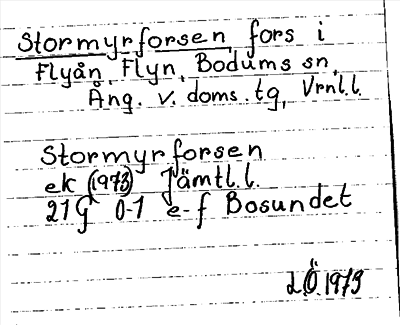 Stormyrforsen, fors i
Flyån, Flyn, Bodums sn,
Ång. v. doms. tg, Vrnl.l.
Stormyrforsen
ek (1973) Jämtl.l.
21G 0-1 e-f Bosundet
LÖ 1979